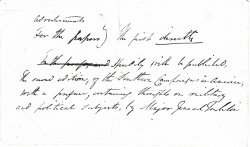 Advertisements
For the papers) the first directly
In the preparation Speedily will be published,
The second edition, of the Southern Confederacy in America,
with a preface, containing thoughts on military
and political subjects, by Major General